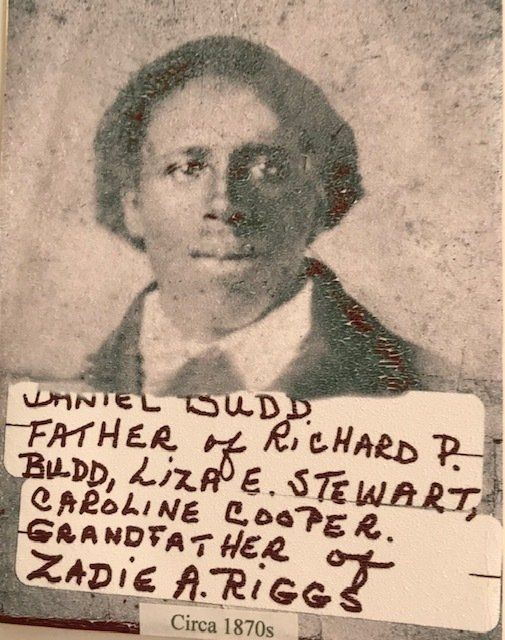 DANIEL BUDD
FATHER of RICHARD P.
BUDD, LIZA E. STEWART,
CAROLINE COOPER.
GRANDFATHER of
ZADIE A. RIGGS
Circa 1870s